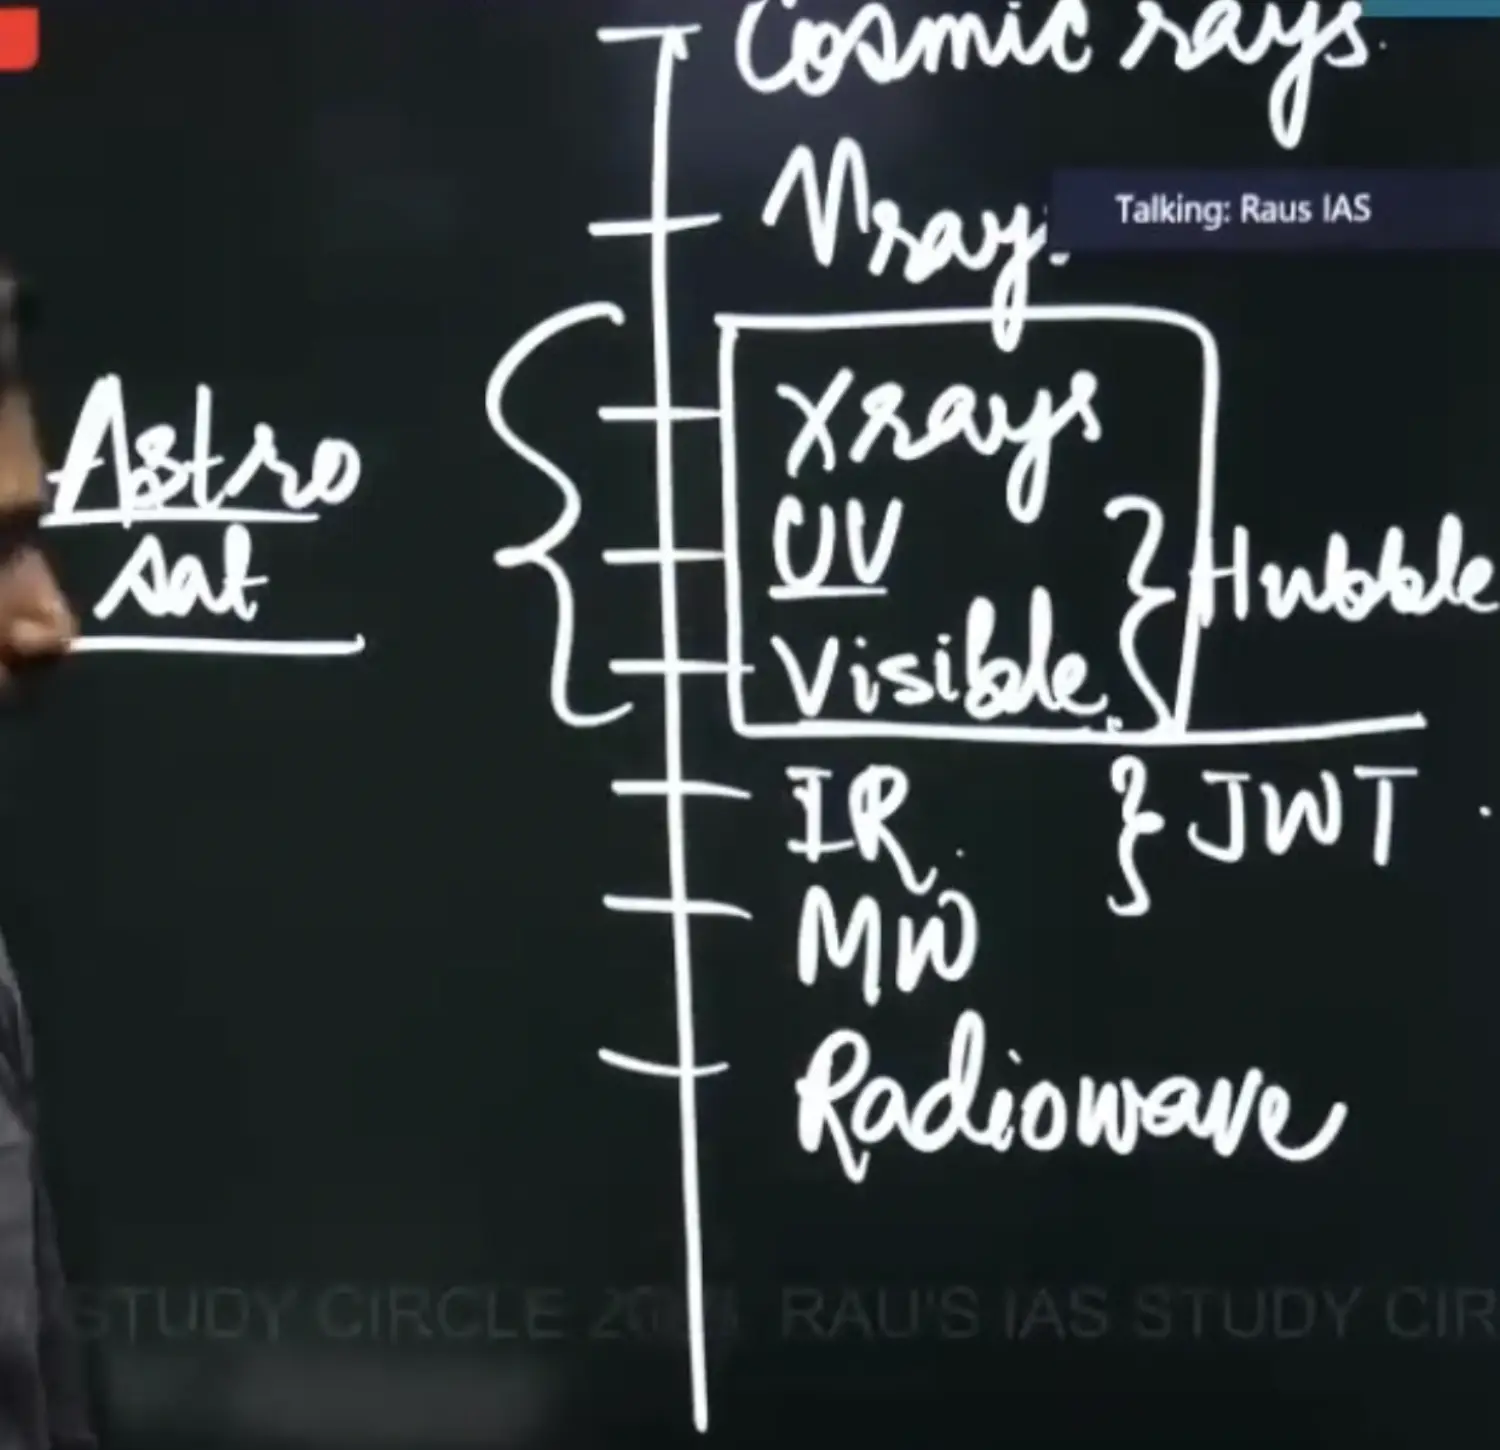 Cosmic rays.
γ ray.
Talking: Raus IAS
X rays
Astro
sat
UV
Hubble
Visible.
IR.
JWT
MW
Radiowave
STUDY CIRCLE RAU'S IAS STUDY CIR